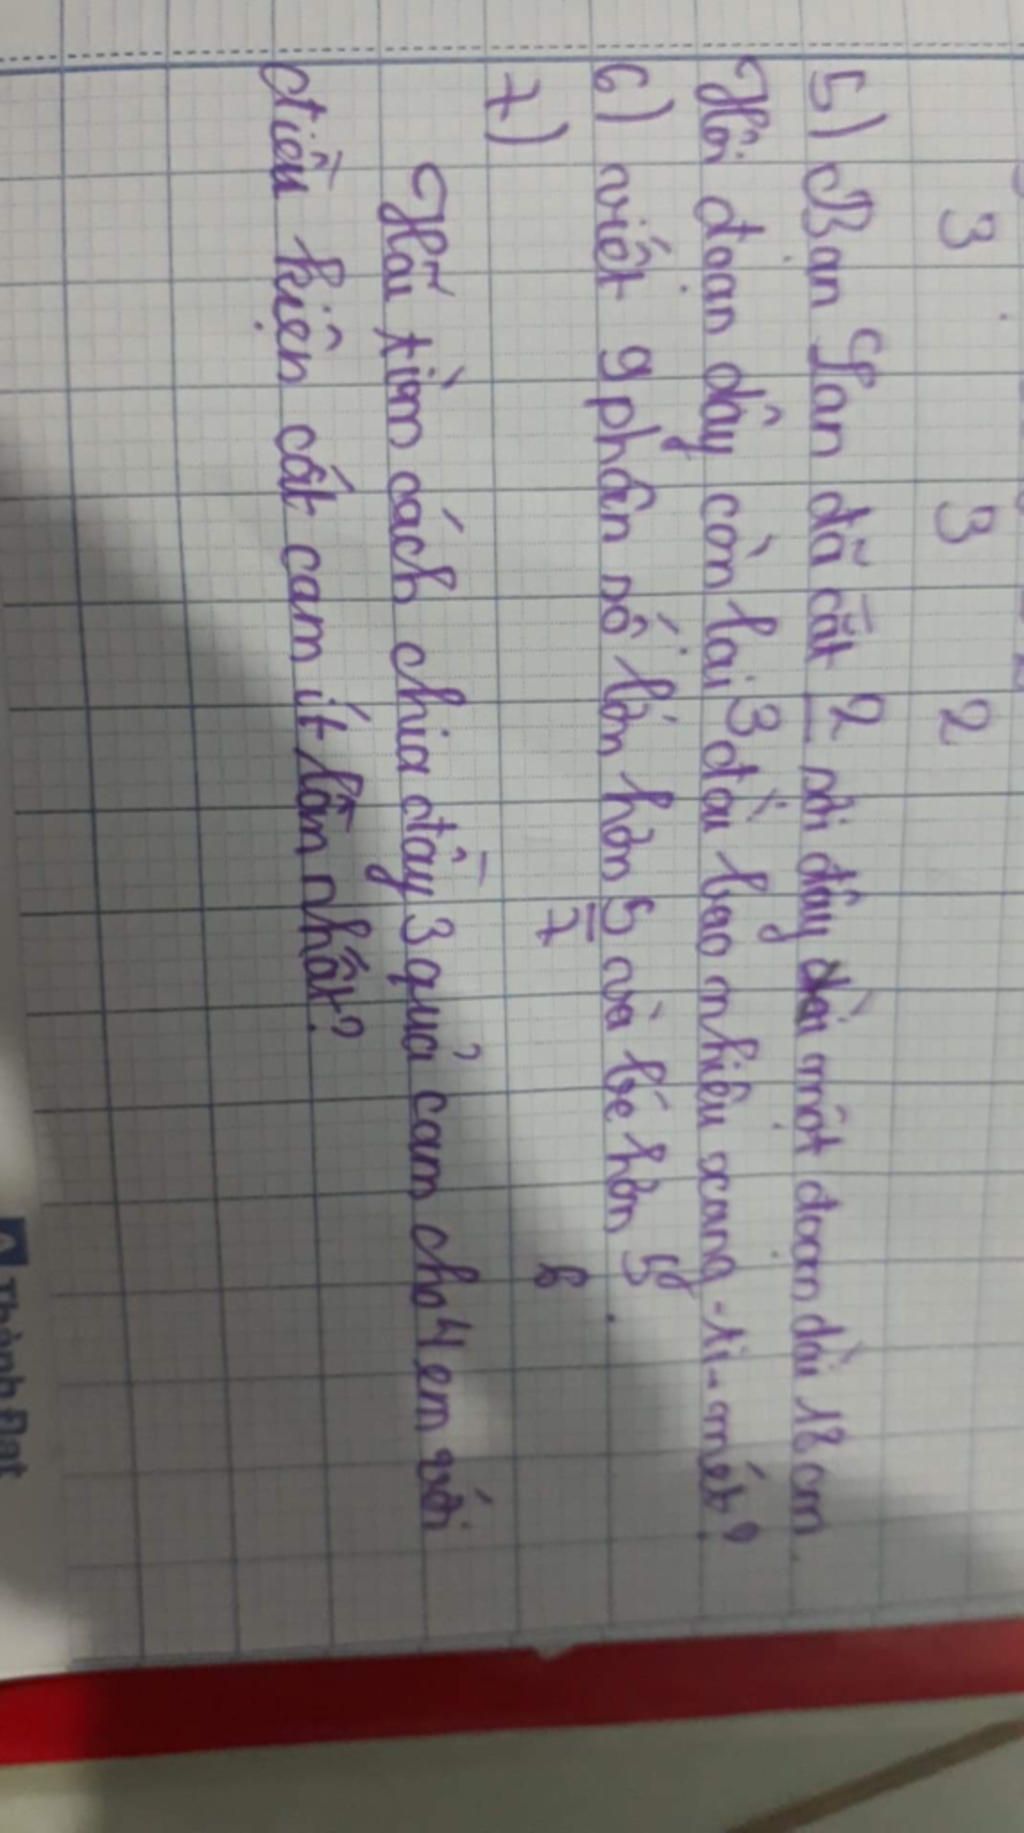 3 3 2
5) Bạn Lan đã cắt 2/3 sợi dây dài một đoạn dài 18 cm.
Hỏi đoạn dây còn lại dài bao nhiêu xăng-ti-mét?
6) viết 9 phân số lớn hơn 5/7 và bé hơn 5/6.
7)
Hãy tìm cách chia đầy 3 quả cam cho 4 em với
điều kiện cắt cam ít lần nhất?
Thành Đạt